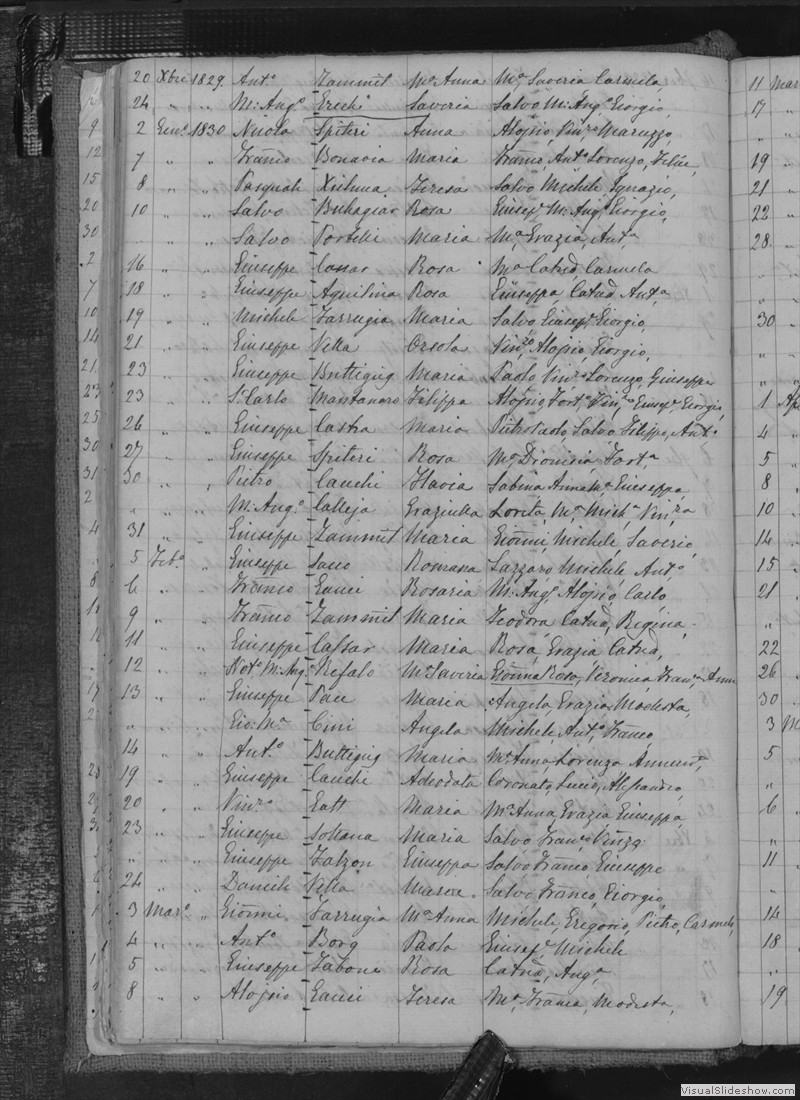 20 Xbre 1829. Ant.o Zammit M.a Anna M.a Saveria Carmela,
24 " " M: Ang.o Saveria Salvo M: Ang.o Giorgio,
9 2 Gen.o 1830 Nicola Spiteri Anna Alojsio, Vinz.o Maruzzo
12 7 " " Franco Bonavia Maria Franco, Ant.o Lorenzo, Felice,
15 8 " " Pasquale Xicluna Teresa Salvo Michele Ignazio,
20 10 " " Salvo Buhagiar Rosa Giusep.e M: Ang.o Giorgio,
30 " " Salvo Portelli Maria M.a Grazia, Ant.a
2 16 " " Giuseppe Cassar Rosa M.a Catad Carmela
7 18 " " Giuseppe Aquilina Rosa Giuseppa, Catad Ant.a
10 19 " " Michele Farrugia Maria Salvo Giusep.e Giorgio,
14 21 " " Giuseppe Vella Orsola Vinz.o Alojsio, Giorgio,
21 23 " " Giuseppe Buttigieg Maria Paolo Vinz.o Lorenzo, Giuseppe
23 23 " " Filippa Alojsio, Fort, Vinz.o Giusep.e Giorgio,
25 26 " " Giuseppe Maria Salvo, Filippo, Ant.o
30 27 " " Giuseppe Spiteri Rosa M.a Dionisia Fort.a
31 30 " " Pietro Cauchi Flavia Sabina Anna M.a Giuseppa,
2 " " M: Ang.o Calleja Graziulla Loreta, M.a Mich.a Vinz.a
4 31 " " Giuseppe Zammit Maria Gionni, Michele, Saverio,
5 Feb.o " Giuseppe Romana Lazzaro Michele Ant.o
8 6 " " Franco Gauci Rosaria M: Ang.o Alojsio, Carlo
9 " " Franco Zammit Maria Teodora Catad, Regina,
11 " " Giuseppe Cassar Maria Rosa, Grazia Catad,
12 " " Not.o M: Ang.o Refalo M.a Saveria Gionna Rosa, Veronica, Fran.a Anna
17 13 " " Giuseppe Pace Maria Angela Grazia Modesta,
2 " " Gio: M.a Cini Angela Michele, Ant.o Franco
14 " " Ant.o Buttigieg Maria M.a Anna Lorenza Annun.a
19 " " Giuseppe Cauchi Adeodata Coronato, Lucio, Alessandro,
20 " " Vinz.o Gatt Maria M.a Anna, Grazia Giuseppa,
23 " " Giuseppe Maria Salvo Fran.o Vinza
" " " Giuseppe Falzon Giuseppa Salvo Franco Giuseppe
24 " " Daniele Vella Salvo Franco, Giorgio,
3 Mar.o " Gionni Farrugia M.a Anna Michele, Gregorio, Pietro, Carmelo,
4 " " Ant.o Borg Paola Giusep.e Michele
5 " " Giuseppe Tabone Rosa Catad, Ang.a
8 " " Alojsio Gauci Teresa M.a Franca, Modesta,
11 Mar
17
"
19
21
22
28
"
"
30
"
"
1 Ap
4
5
8
10
14
15
21
"
22
26
30
3 M
5
"
6
"
11
"
14
18
"
19
VisualSlideshow.com